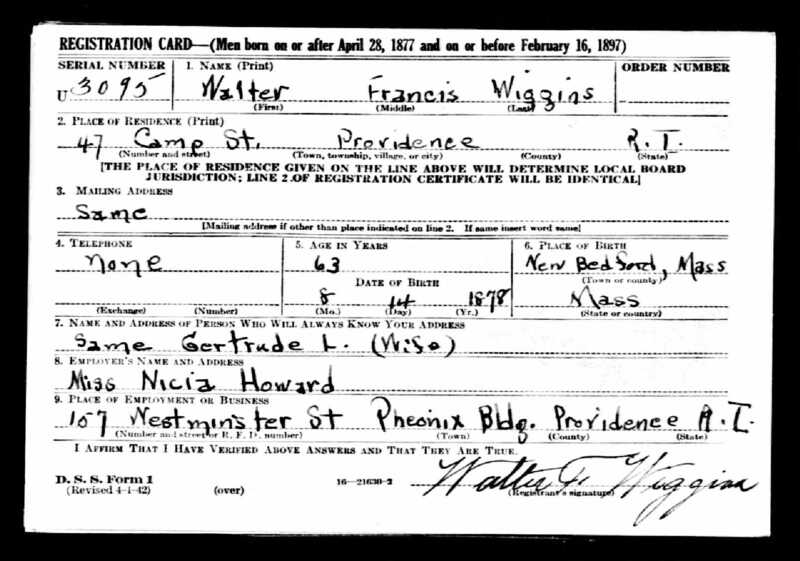 REGISTRATION CARD—(Men born on or after April 28, 1877 and on or before February 16, 1897)
SERIAL NUMBER 1. NAME (Print) ORDER NUMBER
U 3095 Walter Francis Wiggins
(First) (Middle) (Last)
2. PLACE OF RESIDENCE (Print)
47 Camp St. Providence R.I.
(Number and street) (Town, township, village, or city) (County) (State)
[THE PLACE OF RESIDENCE GIVEN ON THE LINE ABOVE WILL DETERMINE LOCAL BOARD
JURISDICTION; LINE 2 OF REGISTRATION CERTIFICATE WILL BE IDENTICAL]
3. MAILING ADDRESS
Same
[Mailing address if other than place indicated on line 2. If same insert word same]
4. TELEPHONE 5. AGE IN YEARS 6. PLACE OF BIRTH
None 63 New Bedford, Mass
(Town or county)
DATE OF BIRTH
8 14 1878 Mass
(Exchange) (Number) (Mo.) (Day) (Yr.) (State or country)
7. NAME AND ADDRESS OF PERSON WHO WILL ALWAYS KNOW YOUR ADDRESS
Same Gertrude L. (Wife)
8. EMPLOYER'S NAME AND ADDRESS
Miss Nicia Howard
9. PLACE OF EMPLOYMENT OR BUSINESS
157 Westminster St Pheonix Bldg. Providence R.I.
(Number and street or R. F. D. number) (Town) (County) (State)
I AFFIRM THAT I HAVE VERIFIED ABOVE ANSWERS AND THAT THEY ARE TRUE.
D. S. S. Form 1
(Revised 4-1-42) (over) 16—21630-2 Walter F. Wiggins
(Registrant's signature)